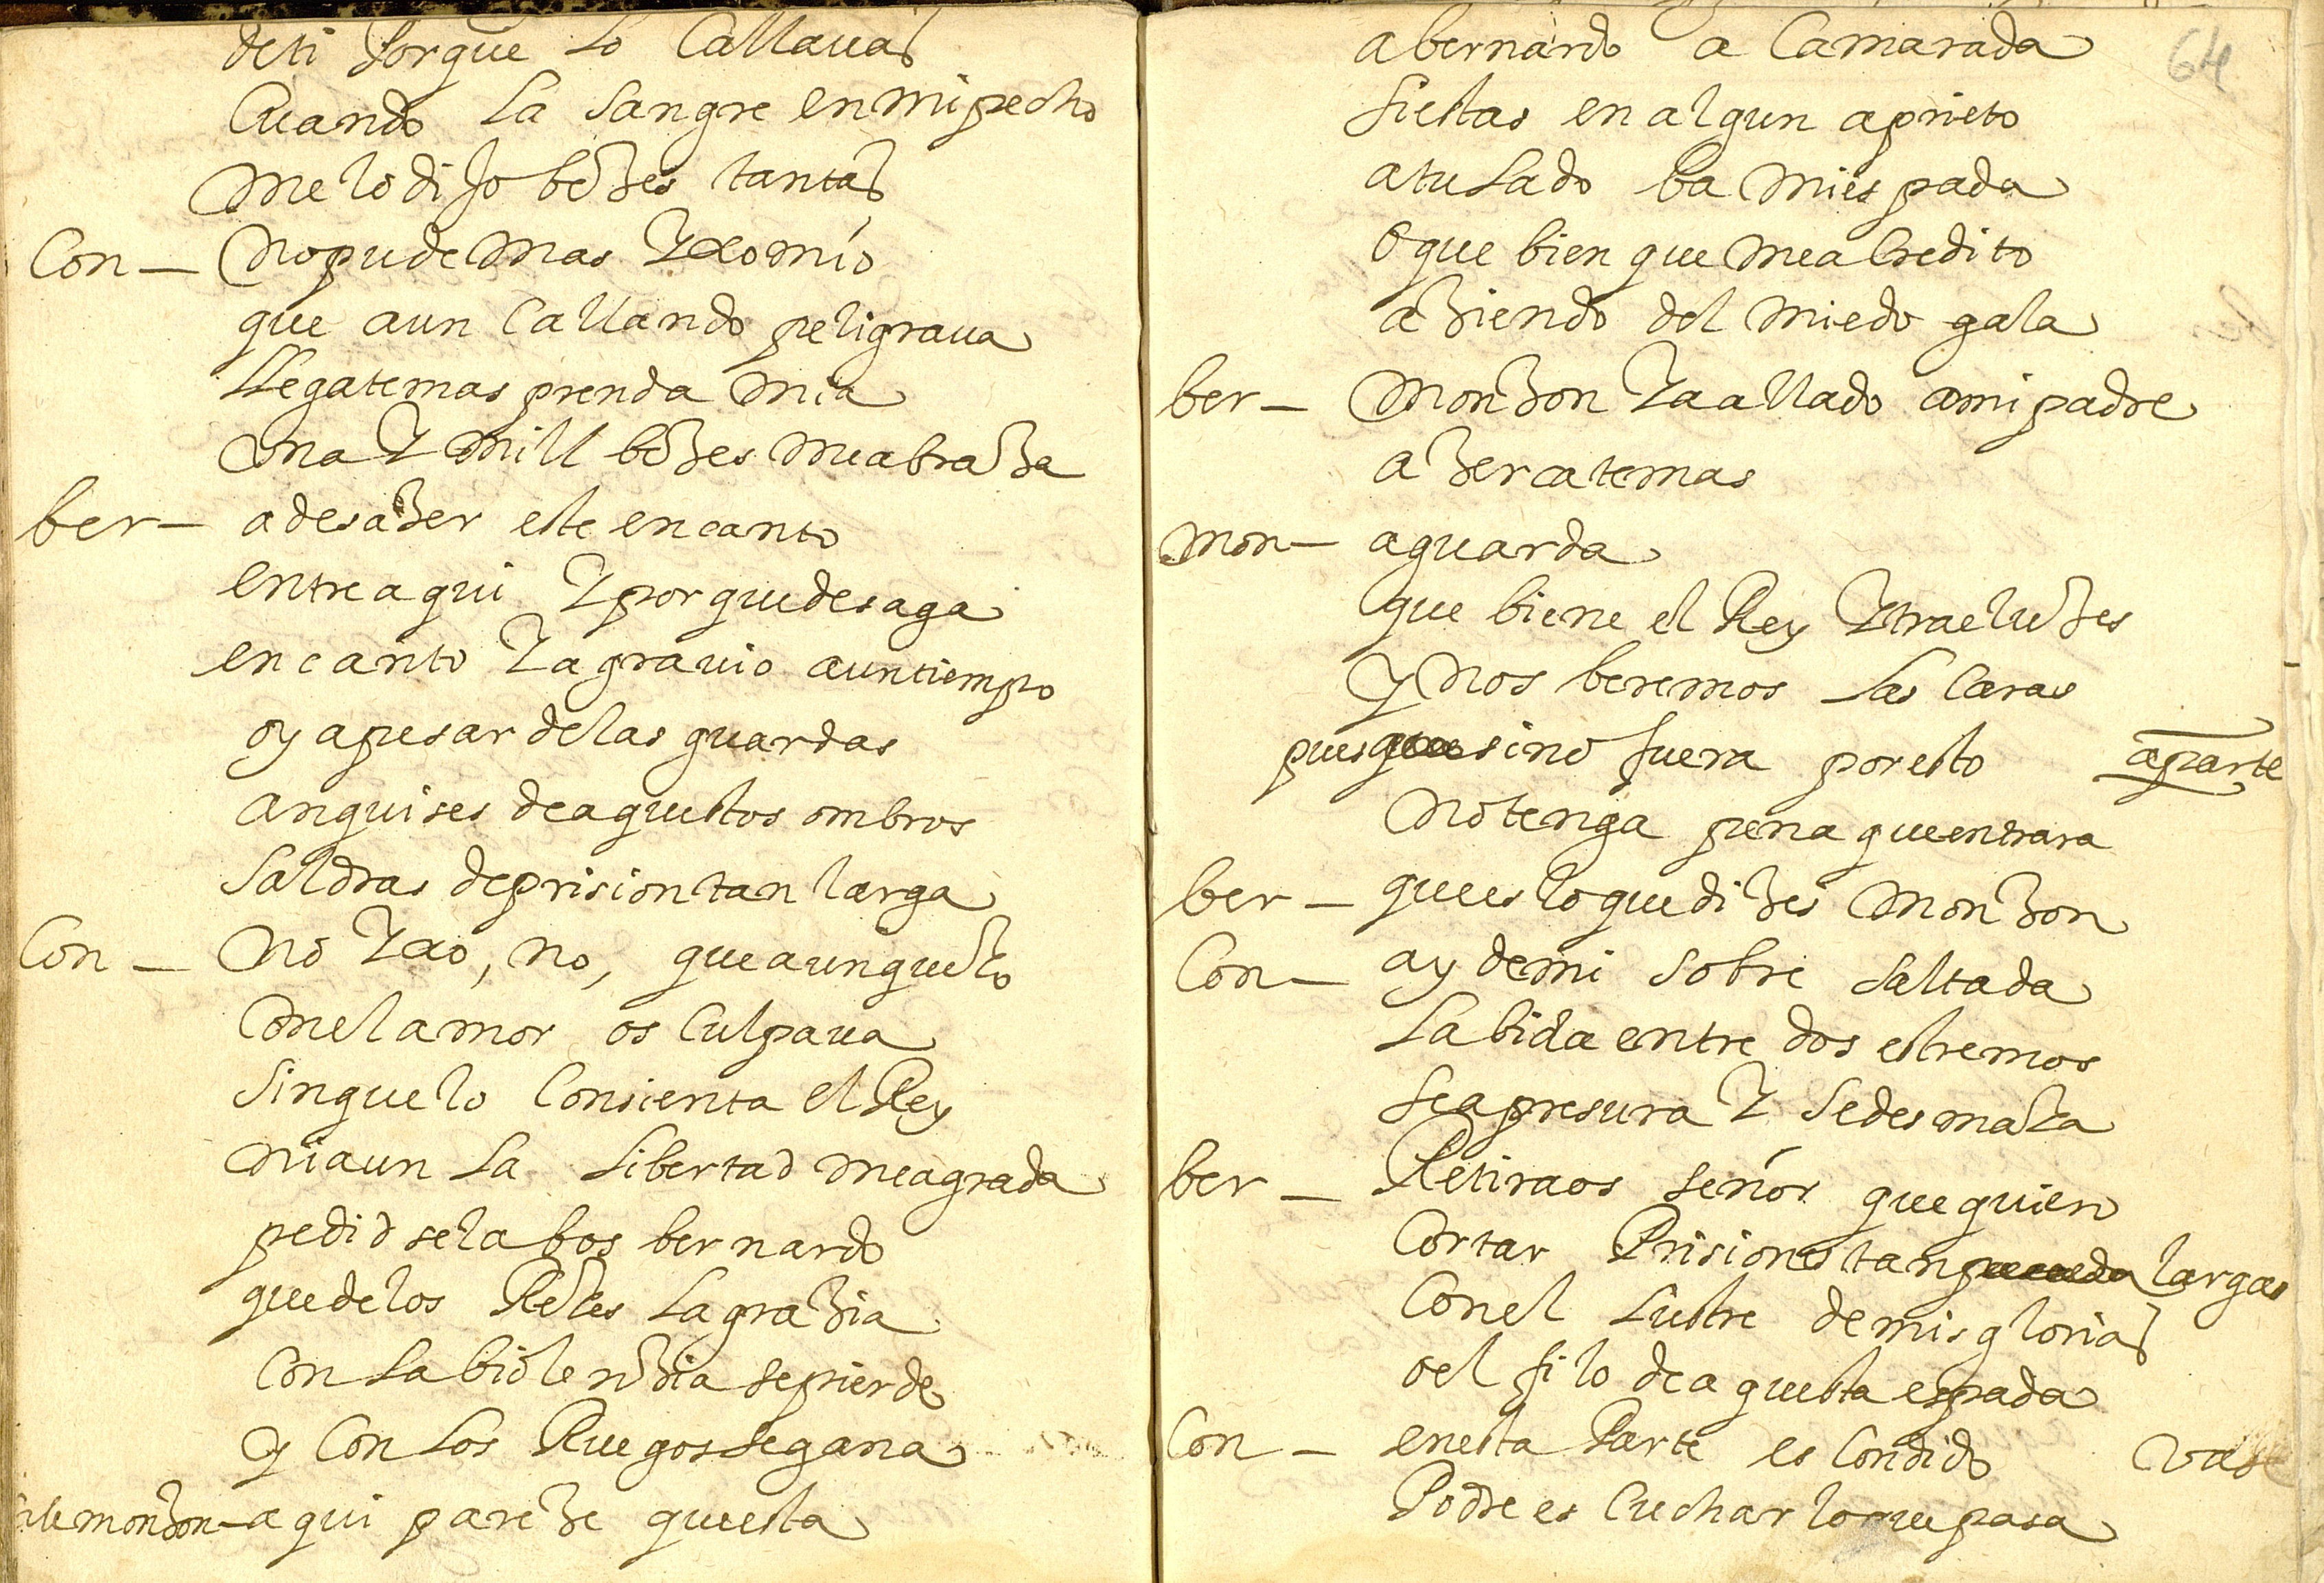 deti Porque lo Callauas
Cuando la sangre enmipecho
melodijo bezes tantas
Con— nopudemas yxomio
que aun Callando peligraua
llegatemas prenda mia
una y mill bezes meabraza
ber— adesazer este encanto
entreaqui yporquedesaga
encanto yagrauio auntiempo
oy apesar delas guardas
anquises deaquestos ombros
saldras deprision tan larga
Con— no yxo, no, queaunque yo
Conelamor os Culpaua
sinquelo Consienta el Rey
niaun la libertad meagrada
pedidsela bos bernardo
quedelos Reyes lagrazia
Con labiolenzia sepierde
y Con los Ruegos segana
sale monzon— aqui pareze questa
64
abernardo a Camarada
siestas enalgun aprieto
atulado ba miespada
o que bien que meacredito
aziendo del miedo gala
ber— monzon yaallado amipadre
azercatemas
mon— aguarda
que biene el Rey ytraeluzes
y nos beremos las Caras
pues sino fuera poresto aparte
notenga pena queentrara
ber— queesloquedizes monzon
Con— ay demi sobre saltada
labida entre dos estremos
seapresura y sedesmaya
ber— Retiraos señor quequien
Cortar Prisiones tan largas
Conel lustre demisglorias
oel filo deaquesta espada
Con— enesta Parte esCondido vase
Podre esCuchar loquepasa